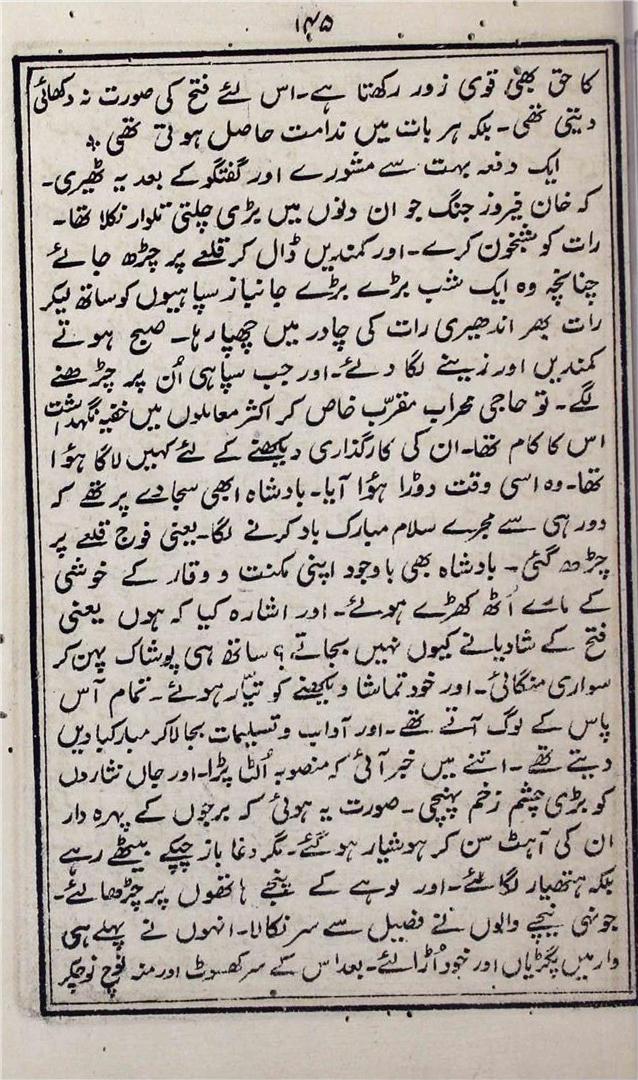 ۱۴۵
کا حق بھی قوی زور رکھتا ہے۔ اس لئے فتح کی صورت نہ دکھائی
دیتی تھی۔ بلکہ ہر بات میں ندامت حاصل ہوتی تھی ٭
ایک دفعہ بہت سے مشورے اور گفتگو کے بعد یہ ٹھیری۔
کہ خان فیروز جنگ جو ان دنوں میں بڑی چلتی تلوار نکلا تھا۔
رات کو شبخون کرے۔ اور کمندیں ڈال کر قلعے پر چڑھ جائے
چنانچہ وہ ایک شب بڑے بڑے جانباز سپاہیوں کو ساتھ لیکر
رات بھر اندھیری رات کی چادر میں چھپا رہا۔ صبح ہوتے
کمندیں اور زینے لگا دئے۔ اور جب سپاہی اُن پر چڑھنے
لگے۔ تو حاجی محراب مقرّب خاص کر اکثر معاملوں میں خفیہ نگہداشت
اس کا کام تھا۔ ان کی کارگذاری دیکھنے کے لئے کہیں لاگا ہؤا
تھا۔ وہ اسی وقت دوڑا ہؤا آیا۔ بادشاہ ابھی سجادے پر تھے کہ
دور ہی سے مجرے سلام مبارک باد کرنے لگا۔ یعنی فوج قلعے پر
چڑھ گئی۔ بادشاہ بھی باوجود اپنی مکنت و وقار کے خوشی
کے مارے اُٹھ کھڑے ہوئے۔ اور اشارہ کیا کہ ہوں یعنی
فتح کے شادیانے کیوں نہیں بجاتے؟ ساتھ ہی پوشاک پہن کر
سواری منگائی۔ اور خود تماشا دیکھنے کو تیّار ہوئے۔ تمام آس
پاس کے لوگ آتے تھے۔ اور آداب و تسلیمات بجا لا کر مبارکبادیں
دیتے تھے۔ اتنے میں خبر آئی کہ منصوبہ اُلٹ پڑا۔ اور جاں نثاروں
کو بڑی چشم زخم پہنچی۔ صورت یہ ہوئی کہ برجوں کے پہرہ دار
ان کی آہٹ سن کر ہوشیار ہو گئے۔ مگر دغا باز چپکے بیٹھے رہے
بلکہ ہتھیار لگا لئے۔ اور لوہے کے پنجے ہاتھوں پر چڑھا لئے۔
جونہی نیچے والوں نے فصیل سے سر نکالا۔ انہوں نے پہلے ہی
وار میں پگڑیاں اور خود اُڑا لئے۔ بعد اس کے سر کھسوٹ اور منہ نوچ نوچکر